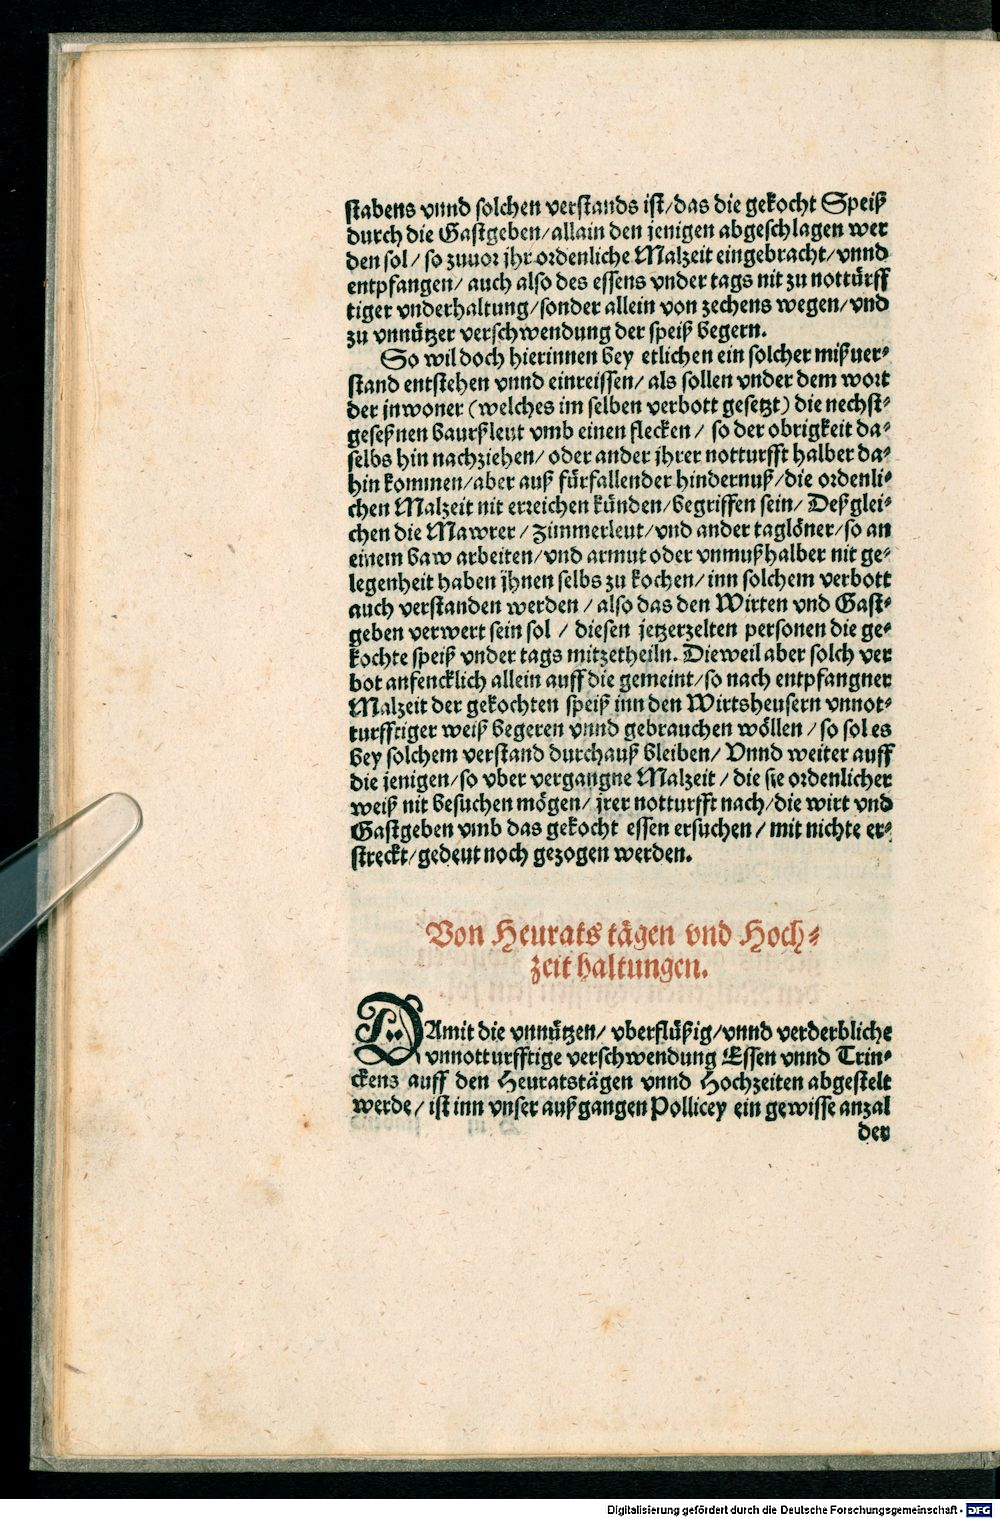 stabens vnnd solchen verstands ist/das die gekocht Speiß
durch die Gastgeben/allain den jenigen abgeschlagen wer
den sol/so zuuor jhr ordenliche Malzeit eingebracht/vnnd
entpfangen/auch also des essens vnder tags nit zu nottürff
tiger vnderhaltung/sonder allein von zechens wegen/vnd
zu vnnützer verschwendung der speiß begern.
So wil doch hierinnen bey etlichen ein solcher mißuer⸗
stand entstehen vnnd einreissen/als sollen vnder dem wort
der jnwoner (welches im selben verbott gesetzt) die nechst⸗
geseßnen baurßleut vmb einen flecken/so der obrigkeit da⸗
selbs hin nachziehen/oder ander jhrer notturfft halber da⸗
hin kommen/aber auß fürfallender hindernuß/die ordenli⸗
chen Malzeit nit erreichen künden/begriffen sein/Deßglei⸗
chen die Mawrer/Zimmerleut/vnd ander taglöner/so an
einem baw arbeiten/vnd armut oder vnmuß halber nit ge⸗
legenheit haben jhnen selbs zu kochen/inn solchem verbott
auch verstanden werden/also das den Wirten vnd Gast⸗
geben verwert sein sol/diesen jetzerzelten personen die ge⸗
kochte speiß vnder tags mitzetheiln. Dieweil aber solch ver
bot anfencklich allein auff die gemeint/so nach entpfangner
Malzeit der gekochten speiß inn den Wirtsheusern vnnot⸗
turfftiger weiß begeren vnnd gebrauchen wöllen/so sol es
bey solchem verstand durchauß bleiben/Vnnd weiter auff
die jenigen/so vber vergangne Malzeit/die sie ordenlicher
weiß nit besuchen mögen/jrer notturfft nach/die wirt vnd
Gastgeben vmb das gekocht essen ersuchen/mit nichte er⸗
streckt/gedeut noch gezogen werden.
Von Heurats tägen vnd Hoch⸗
zeit haltungen.
DAmit die vnnützen/vberflüßig/vnnd verderbliche
vnnotturfftige verschwendung Essen vnnd Trin⸗
ckens auff den Heuratstägen vnnd Hochzeiten abgestelt
werde/ist inn vnser außgangen Pollicey ein gewisse anzal
der
Digitalisierung gefördert durch die Deutsche Forschungsgemeinschaft - DFG